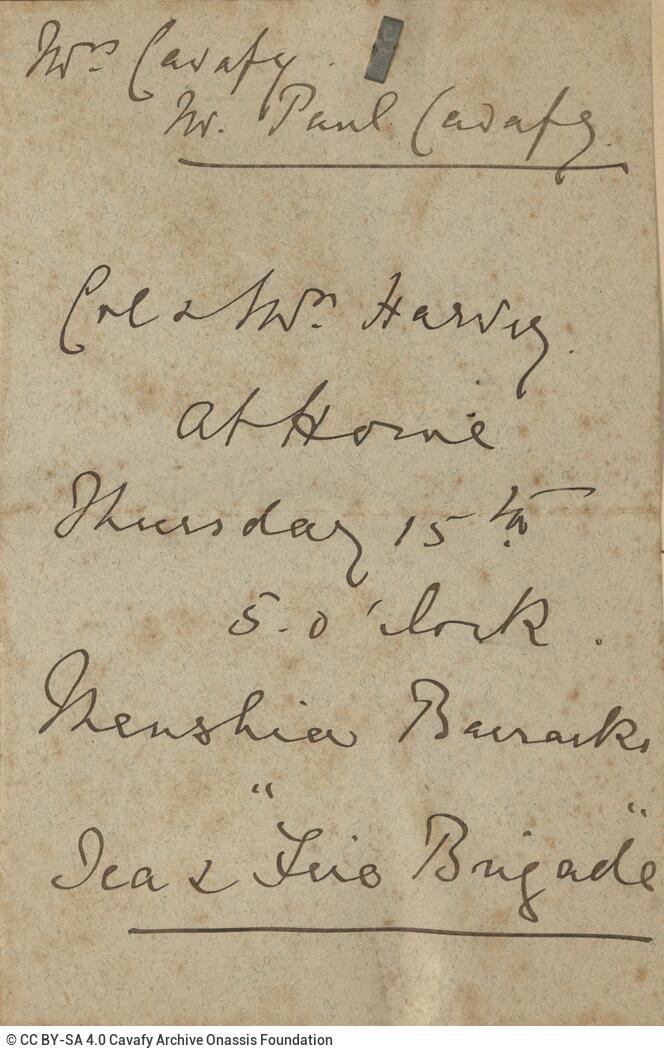 Mrs Cavafy.
Mr. Paul Cavafy.
Col & Mrs Harvey.
At Home
Thursday 15th
5. o'clock.
Menshia Barracks
Tea & "Fire Brigade"
© CC BY-SA 4.0 Cavafy Archive Onassis Foundation